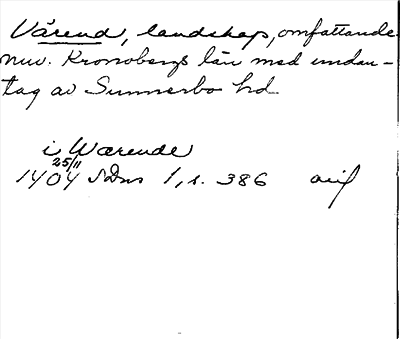 Värend, landskap, omfattande
nuv. Kronobergs län med undan-
tag av Sunnerbo hd
i Wærende
25/11
1404 SDns 1, s. 386 avif